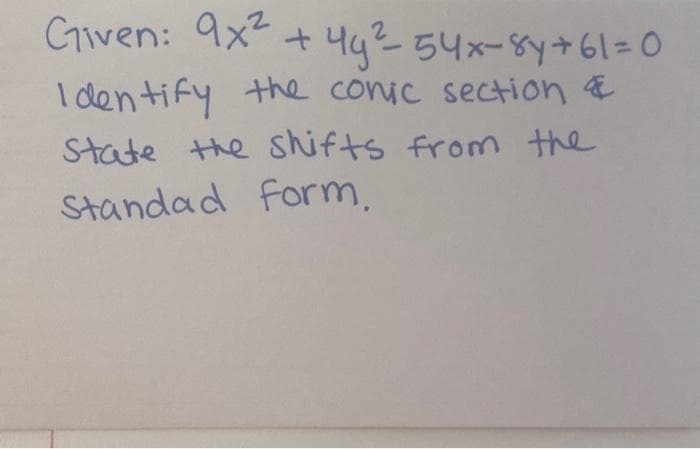 Given: 9x² + 4y² - 54x - 8y + 61 = 0
Identify the conic section &
State the shifts from the
Standad form.